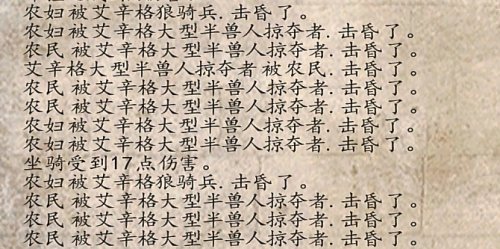 农妇 被 艾辛格狼骑兵. 击昏了。
农妇 被 艾辛格大型半兽人掠夺者. 击昏了。
农民 被 艾辛格大型半兽人掠夺者. 击昏了。
艾辛格大型半兽人掠夺者 被 农民. 击昏了。
农民 被 艾辛格大型半兽人掠夺者. 击昏了。
农民 被 艾辛格大型半兽人掠夺者. 击昏了。
农妇 被 艾辛格大型半兽人掠夺者. 击昏了。
农妇 被 艾辛格大型半兽人掠夺者. 击昏了。
坐骑受到17,点伤害。
农妇 被 艾辛格狼骑兵. 击昏了。
农民 被 艾辛格大型半兽人掠夺者. 击昏了。
农民 被 艾辛格大型半兽人掠夺者. 击昏了。
农民 被 艾辛格大型半兽人掠夺者. 击昏了。